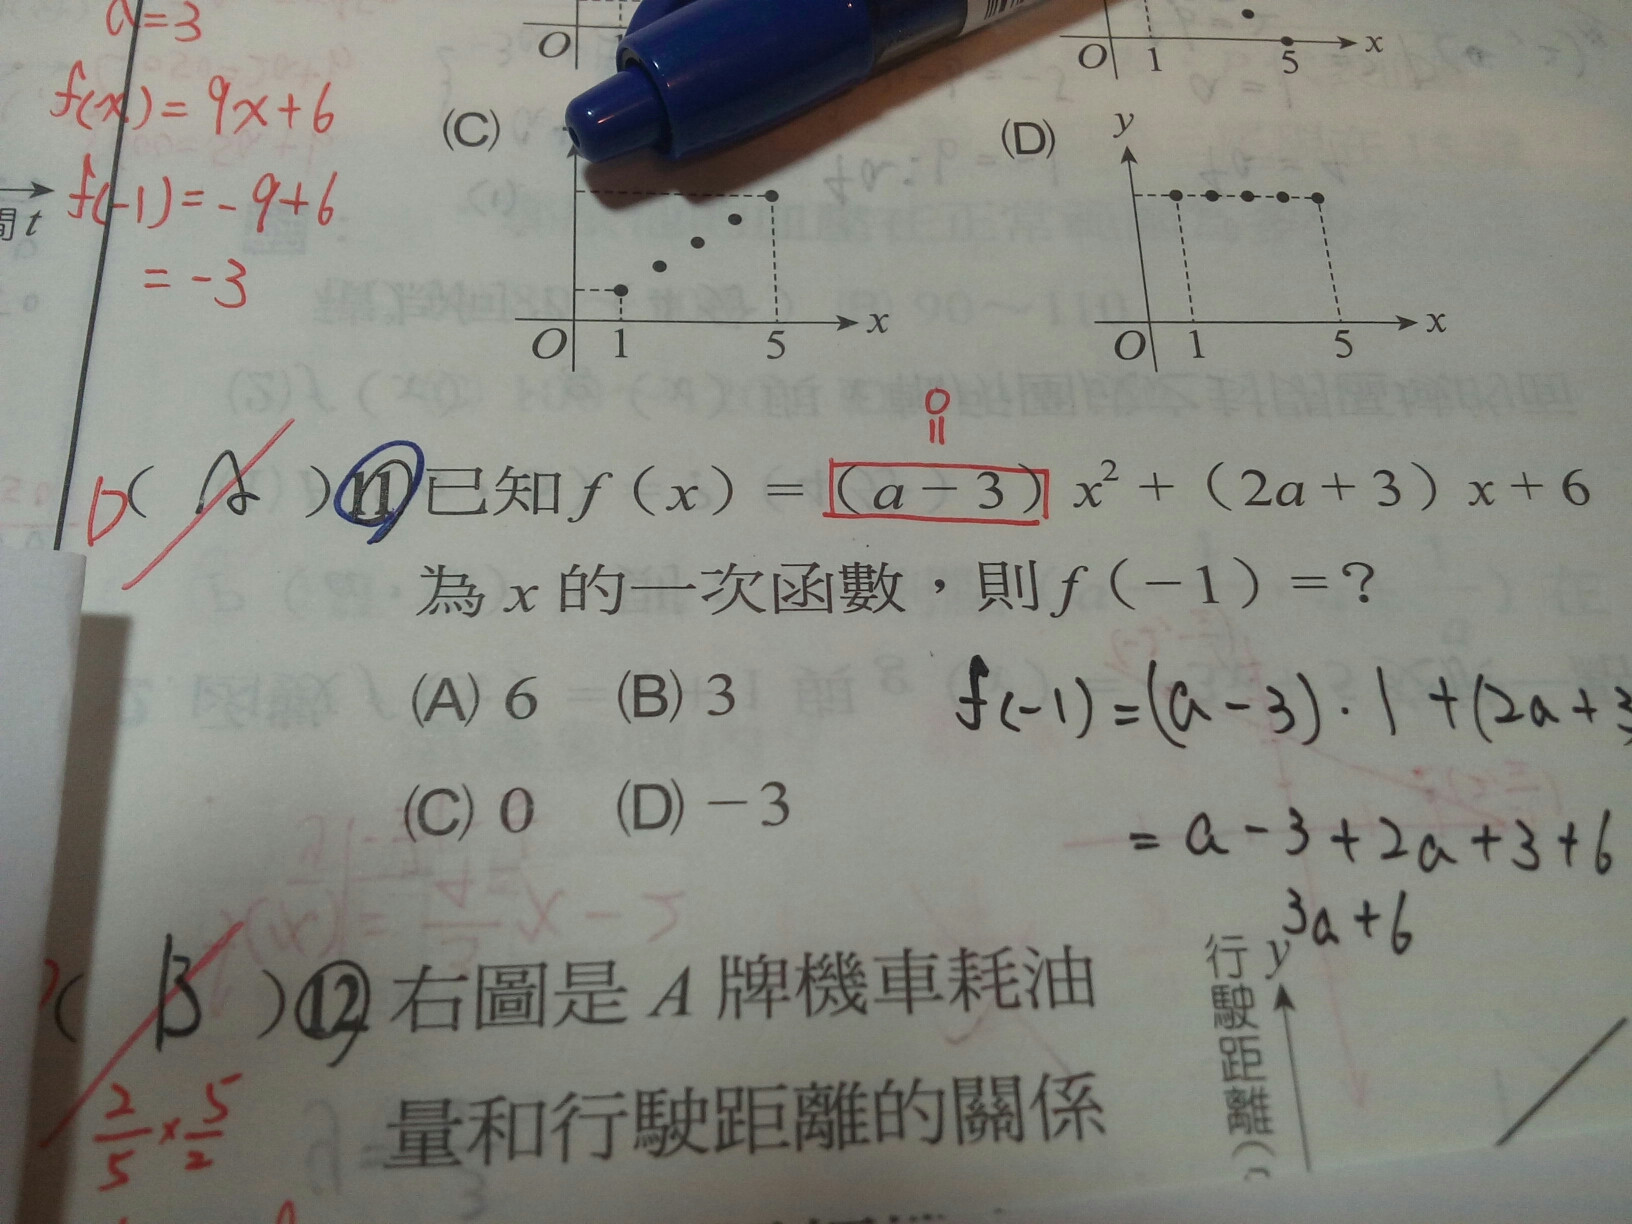 a=3
f(x)=9x+6
f(-1)=-9+6
=-3
間 t
O
O 1 5 x
(C)
O 1 5 x
(D)
y
O 1 5 x
0
=
D( A )11 已知 f(x)=(a-3)x²+(2a+3)x+6
為 x 的一次函數,則 f(-1)=?
(A) 6 (B) 3
(C) 0 (D) -3
f(-1)=(a-3)·1+(2a+3
=a-3+2a+3+6
3a+6
( B )12 右圖是 A 牌機車耗油
量和行駛距離的關係
2/5×5/2
行駛距離(
y